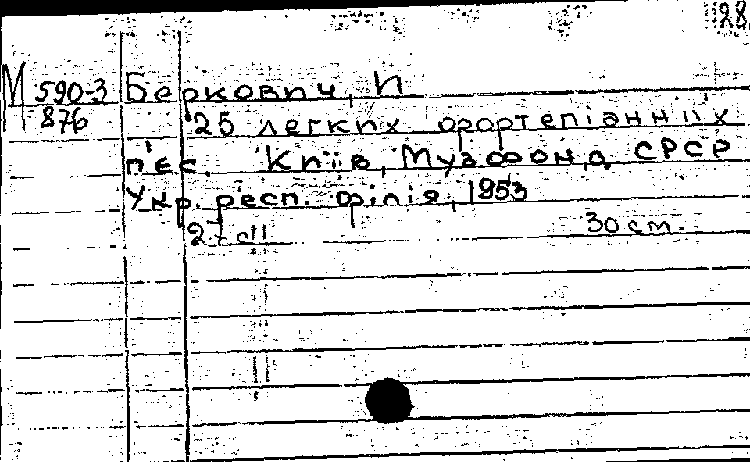 28
М 590-3 Беркович, И
876 25 легких фортепіанних
п'єс. Київ, Музфонд СРСР
Укр. респ. філія, 1953
27 с 30 см.